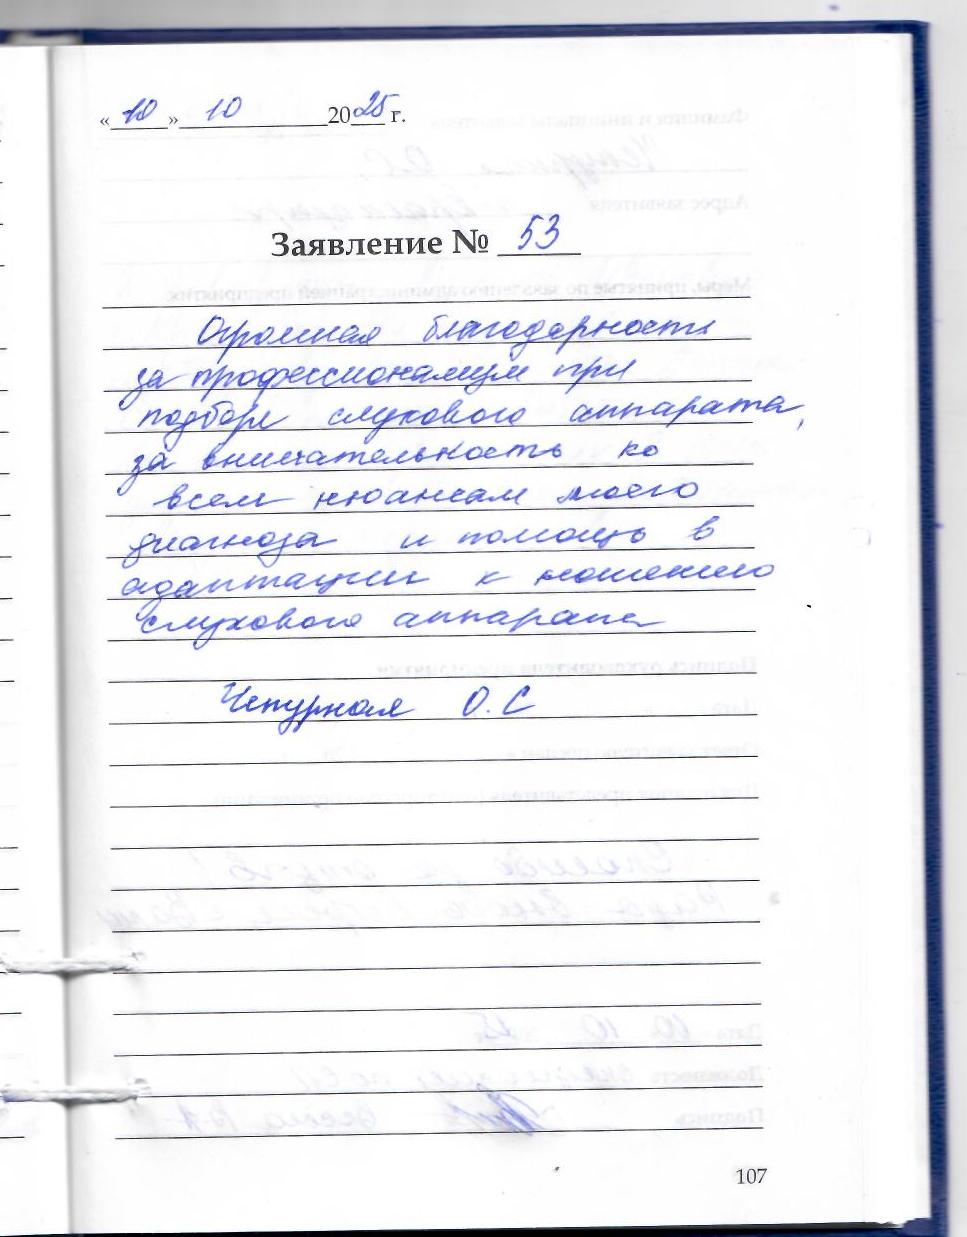 «10» 10 2025 г.
Заявление № 53
Огромная благодарность
за профессионализм при
подборе слухового аппарата,
за внимательность ко
всем нюансам моего
диагноза и помощь в
адаптации к ношению
слухового аппарата
Чепурная О.С
107